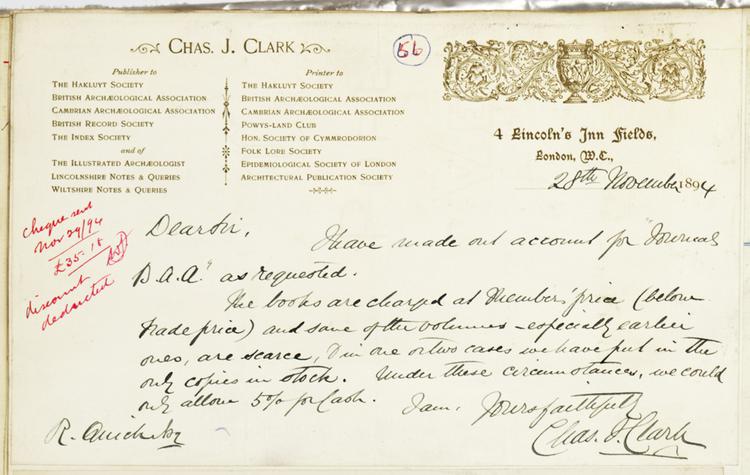 CHAS. J. CLARK
56
Publisher to
THE HAKLUYT SOCIETY
BRITISH ARCHÆOLOGICAL ASSOCIATION
CAMBRIAN ARCHÆOLOGICAL ASSOCIATION
BRITISH RECORD SOCIETY
THE INDEX SOCIETY
and of
THE ILLUSTRATED ARCHÆOLOGIST
LINCOLNSHIRE NOTES & QUERIES
WILTSHIRE NOTES & QUERIES
Printer to
THE HAKLUYT SOCIETY
BRITISH ARCHÆOLOGICAL ASSOCIATION
CAMBRIAN ARCHÆOLOGICAL ASSOCIATION
POWYS-LAND CLUB
HON. SOCIETY OF CYMMRODORION
FOLK LORE SOCIETY
EPIDEMIOLOGICAL SOCIETY OF LONDON
ARCHITECTURAL PUBLICATION SOCIETY
4 Lincoln's Inn Fields,
London, (W.C.,
28th November 1894
cheque sent
Nov 29/94
£35-18
discount
deducted
Dear Sir,
I have made out account for "Journals
B.A.A." as requested.
The books are charged at Members' price (below
Trade price) and some of the volumes - especially earlier
ones, are scarce, & in one or two cases we have put in the
only copies in stock. Under these circumstances, we could
only allow 5% for Cash.
I am, Yours faithfully
Chas. J. Clark
R.